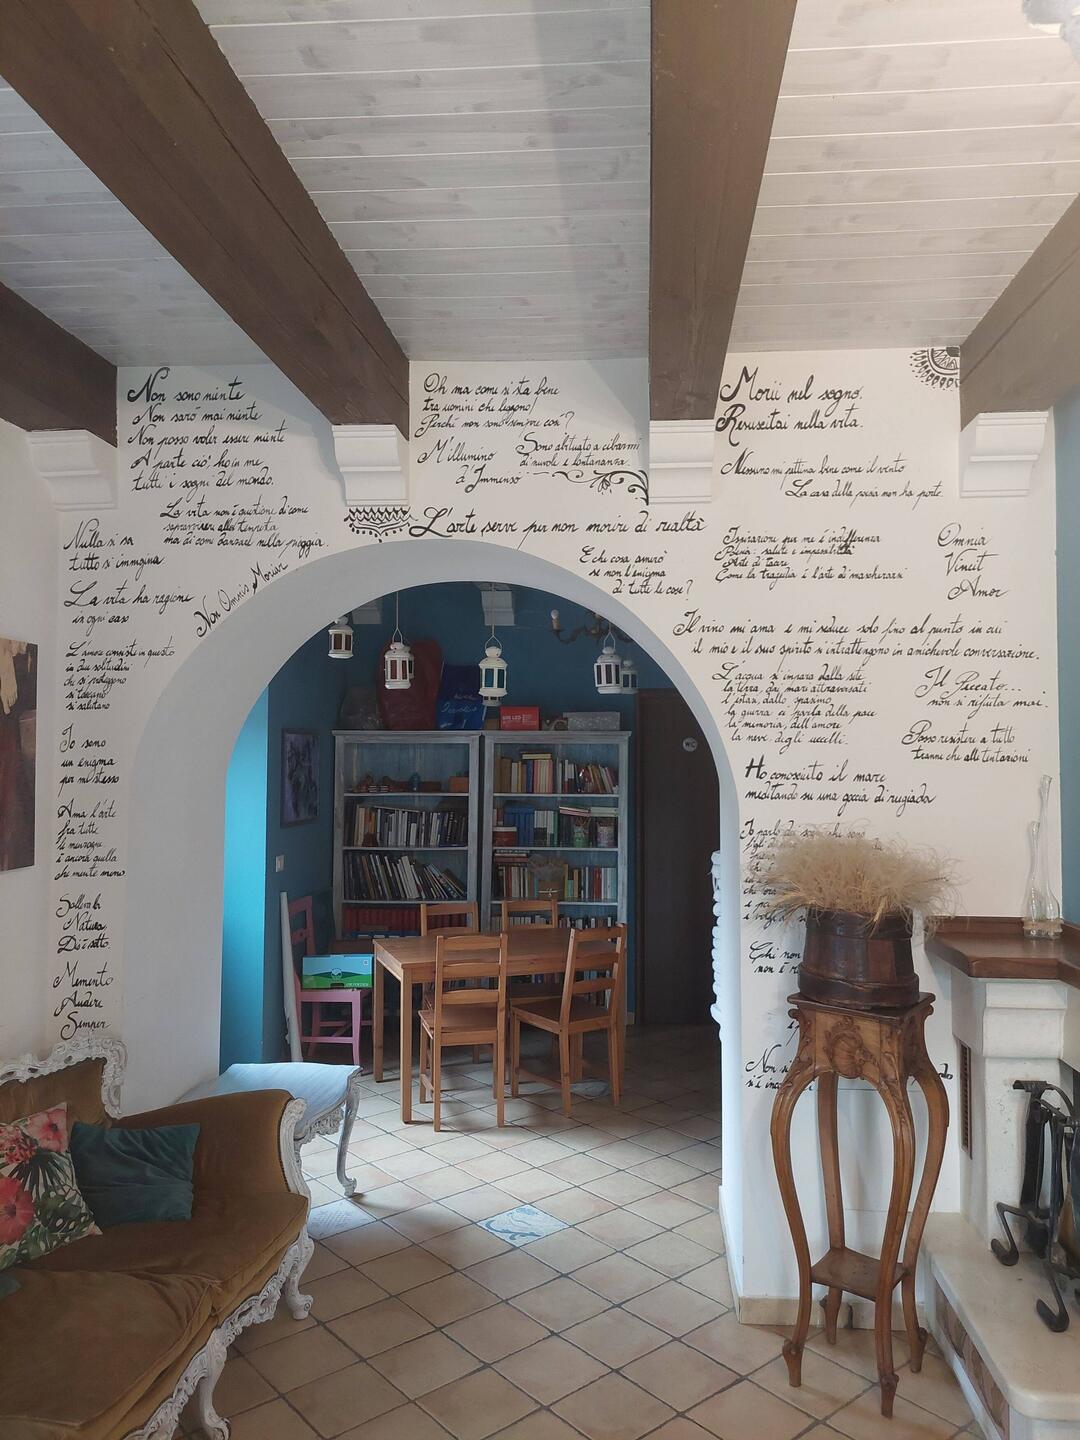 Non sono niente
Non sarò mai niente
Non posso voler essere niente
A parte ciò, ho in me
tutti i sogni del mondo.
La vita non è questione di come
sopravvivere alla tempesta
ma di come danzare nella pioggia.
Nulla si sa
tutto si immagina
La vita ha ragione
in ogni caso
Non Omnis Moriar
L'amore consiste in questo
in due solitudini
che si proteggono
si toccano
si salutano
Io sono
un enigma
per mi stesso
Ama l'arte
fra tutte
le menzogne
è ancora quella
che mente meno.
Natura
Memento
Audere
Semper
Oh ma come si sta bene
tra uomini che leggono!
Perché non sono sempre così?
M'illumino
d'Immenso
Sono abituato a cibarmi
di nuvole e lontananza.
L'arte serve per non morire di realtà
E che cosa amerò
se non l'enigma
di tutte le cose?
Morii nel sogno.
Resuscitai nella vita.
Nessuno mi pettina bene come il vento
La casa della poesia non ha porte.
Ispirazione per me è indifferenza
Poesia: salute e impassibilità
Arte di tacere
Come la tragedia è l'arte di mascherarsi
Omnia
Vincit
Amor
Il vino mi ama e mi seduce solo fino al punto in cui
il mio e il suo spirito s'intrattengono in amichevole conversazione.
L'acqua si impara dalla sete
la terra, dai mari attraversati
l'estasi, dallo spasimo
la guerra ci parla della pace
la memoria, dell'amore
la neve degli uccelli.
Il Peccato...
non si rifiuta mai.
Posso resistere a tutto
tranne che alle tentazioni
Ho conosciuto il mare
meditando su una goccia di rugiada
Io parlo dei sogni che sono
Non si
WC